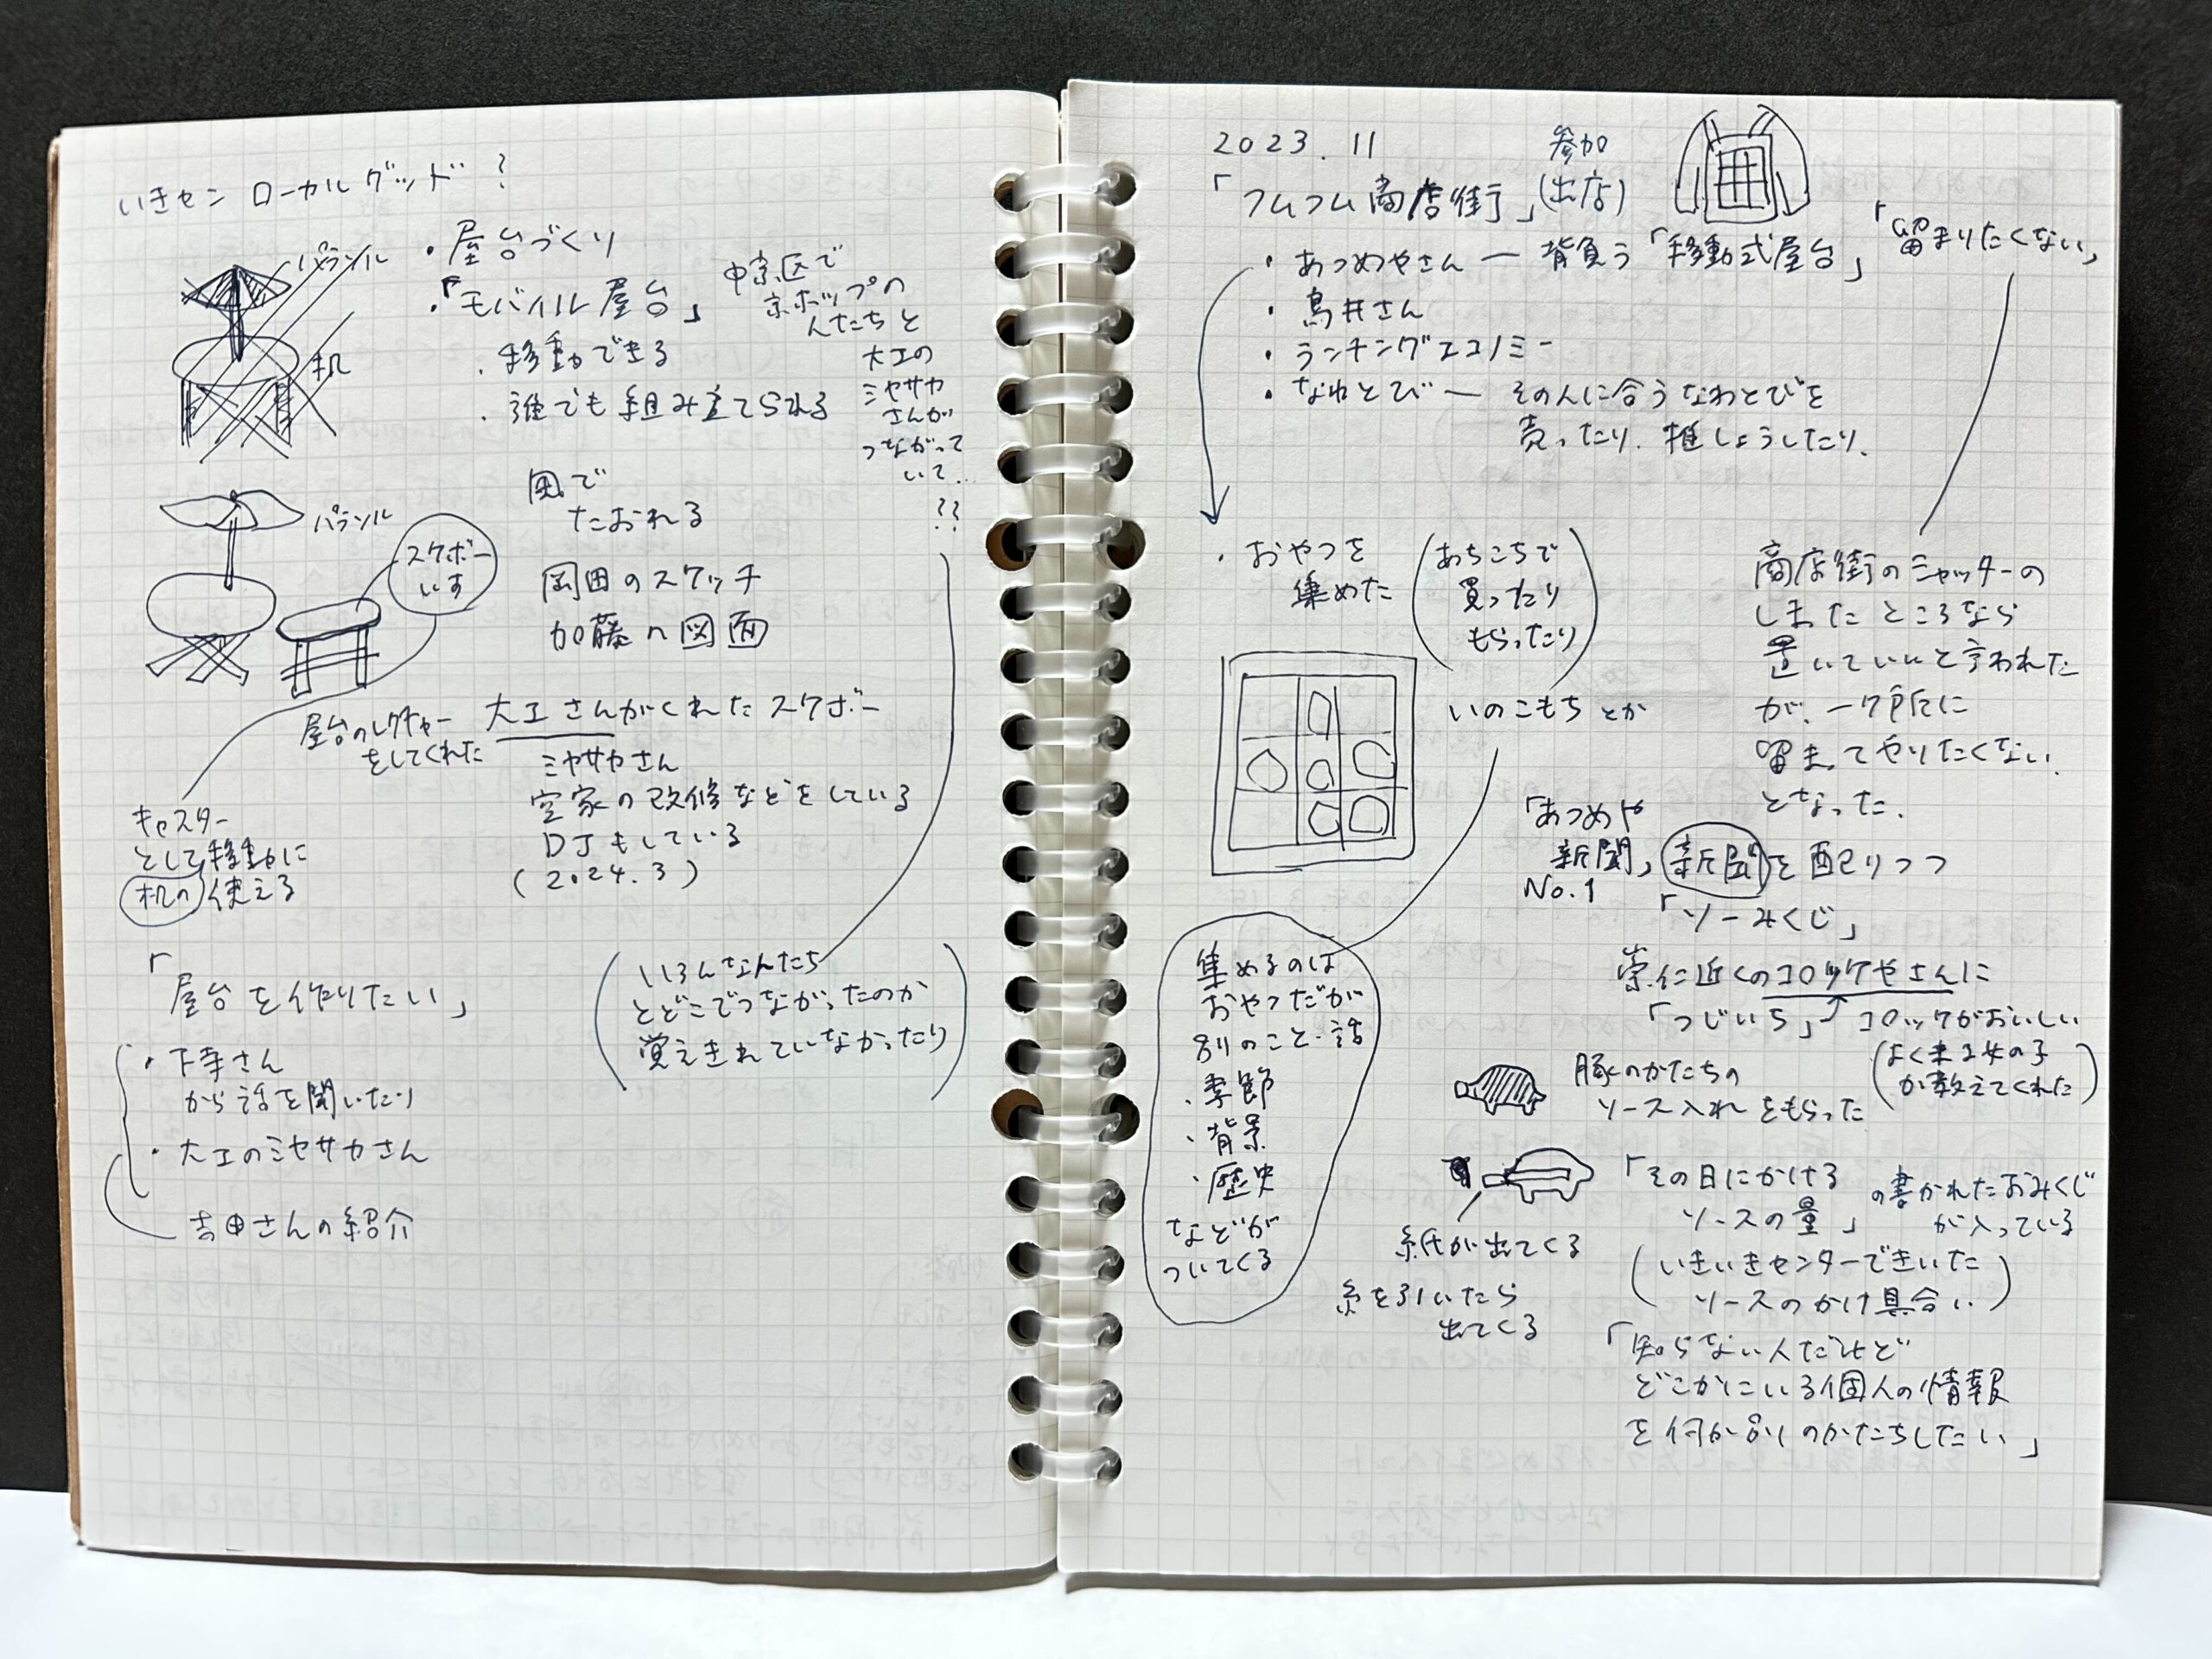 いきセン ローカルグッド?
パラソル
・屋台づくり
・「モバイル屋台」
中京区で
京ポップの
人たちと
大工の
ミヤサカ
さんが
つながって
いて…
??
机
・移動できる
・誰でも組み立てられる
パラソル
スケボー
いす
風で
たおれる
岡田のスケッチ
加藤の図面
屋台のレクチャー
をしてくれた
大工さんがくれたスケボー
ミヤサカさん
空家の改修などをしている
DJもしている
(2024.3)
キャスター
として移動に
机の 使える
「屋台を作りたい」
・下寺さん
から話を聞いたり
・大工のミヤサカさん
吉田さんの紹介
(いろんな人たち
とどこでつながったのか
覚えきれていなかったり)
2023.11
「フムフム商店街」
参加
(出店)
・あつめやさん ― 背負う「移動式屋台」
「留まりたくない」
・鳥井さん
・ランチングエコノミー
・なわとび ― その人に合うなわとびを
売ったり、推しょうしたり、
・おやつを
集めた
(あちこちで
買ったり
もらったり)
いのこもちとか
商店街のシャッターの
しまったところなら
置いていいと言われた
が、一ヶ所に
留まってやりたくない、
となった。
「あつめや
新聞」
No.1
新聞を配りつつ
「ソーみくじ」
崇仁近くのコロッケやさんに
「つじいち」
コロッケがおいしい
(よく来る女の子
が教えてくれた)
豚のかたちの
ソース入れをもらった
集めるのは
おやつだが
別のこと・話
・季節
・背景
・歴史
などが
ついてくる
「その日にかける
ソースの量」
の書かれたおみくじ
が入っている
紙が出てくる
糸を引いたら
出てくる
(いきいきセンターできいた
ソースのかけ具合い)
「知らない人だけど
どこかにいる個人の情報
を何か別のかたちしたい」